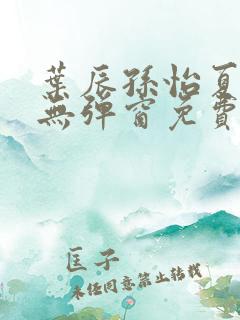 葉辰孫怡夏
無彈窗免費
匡子
未經同意禁止轉載